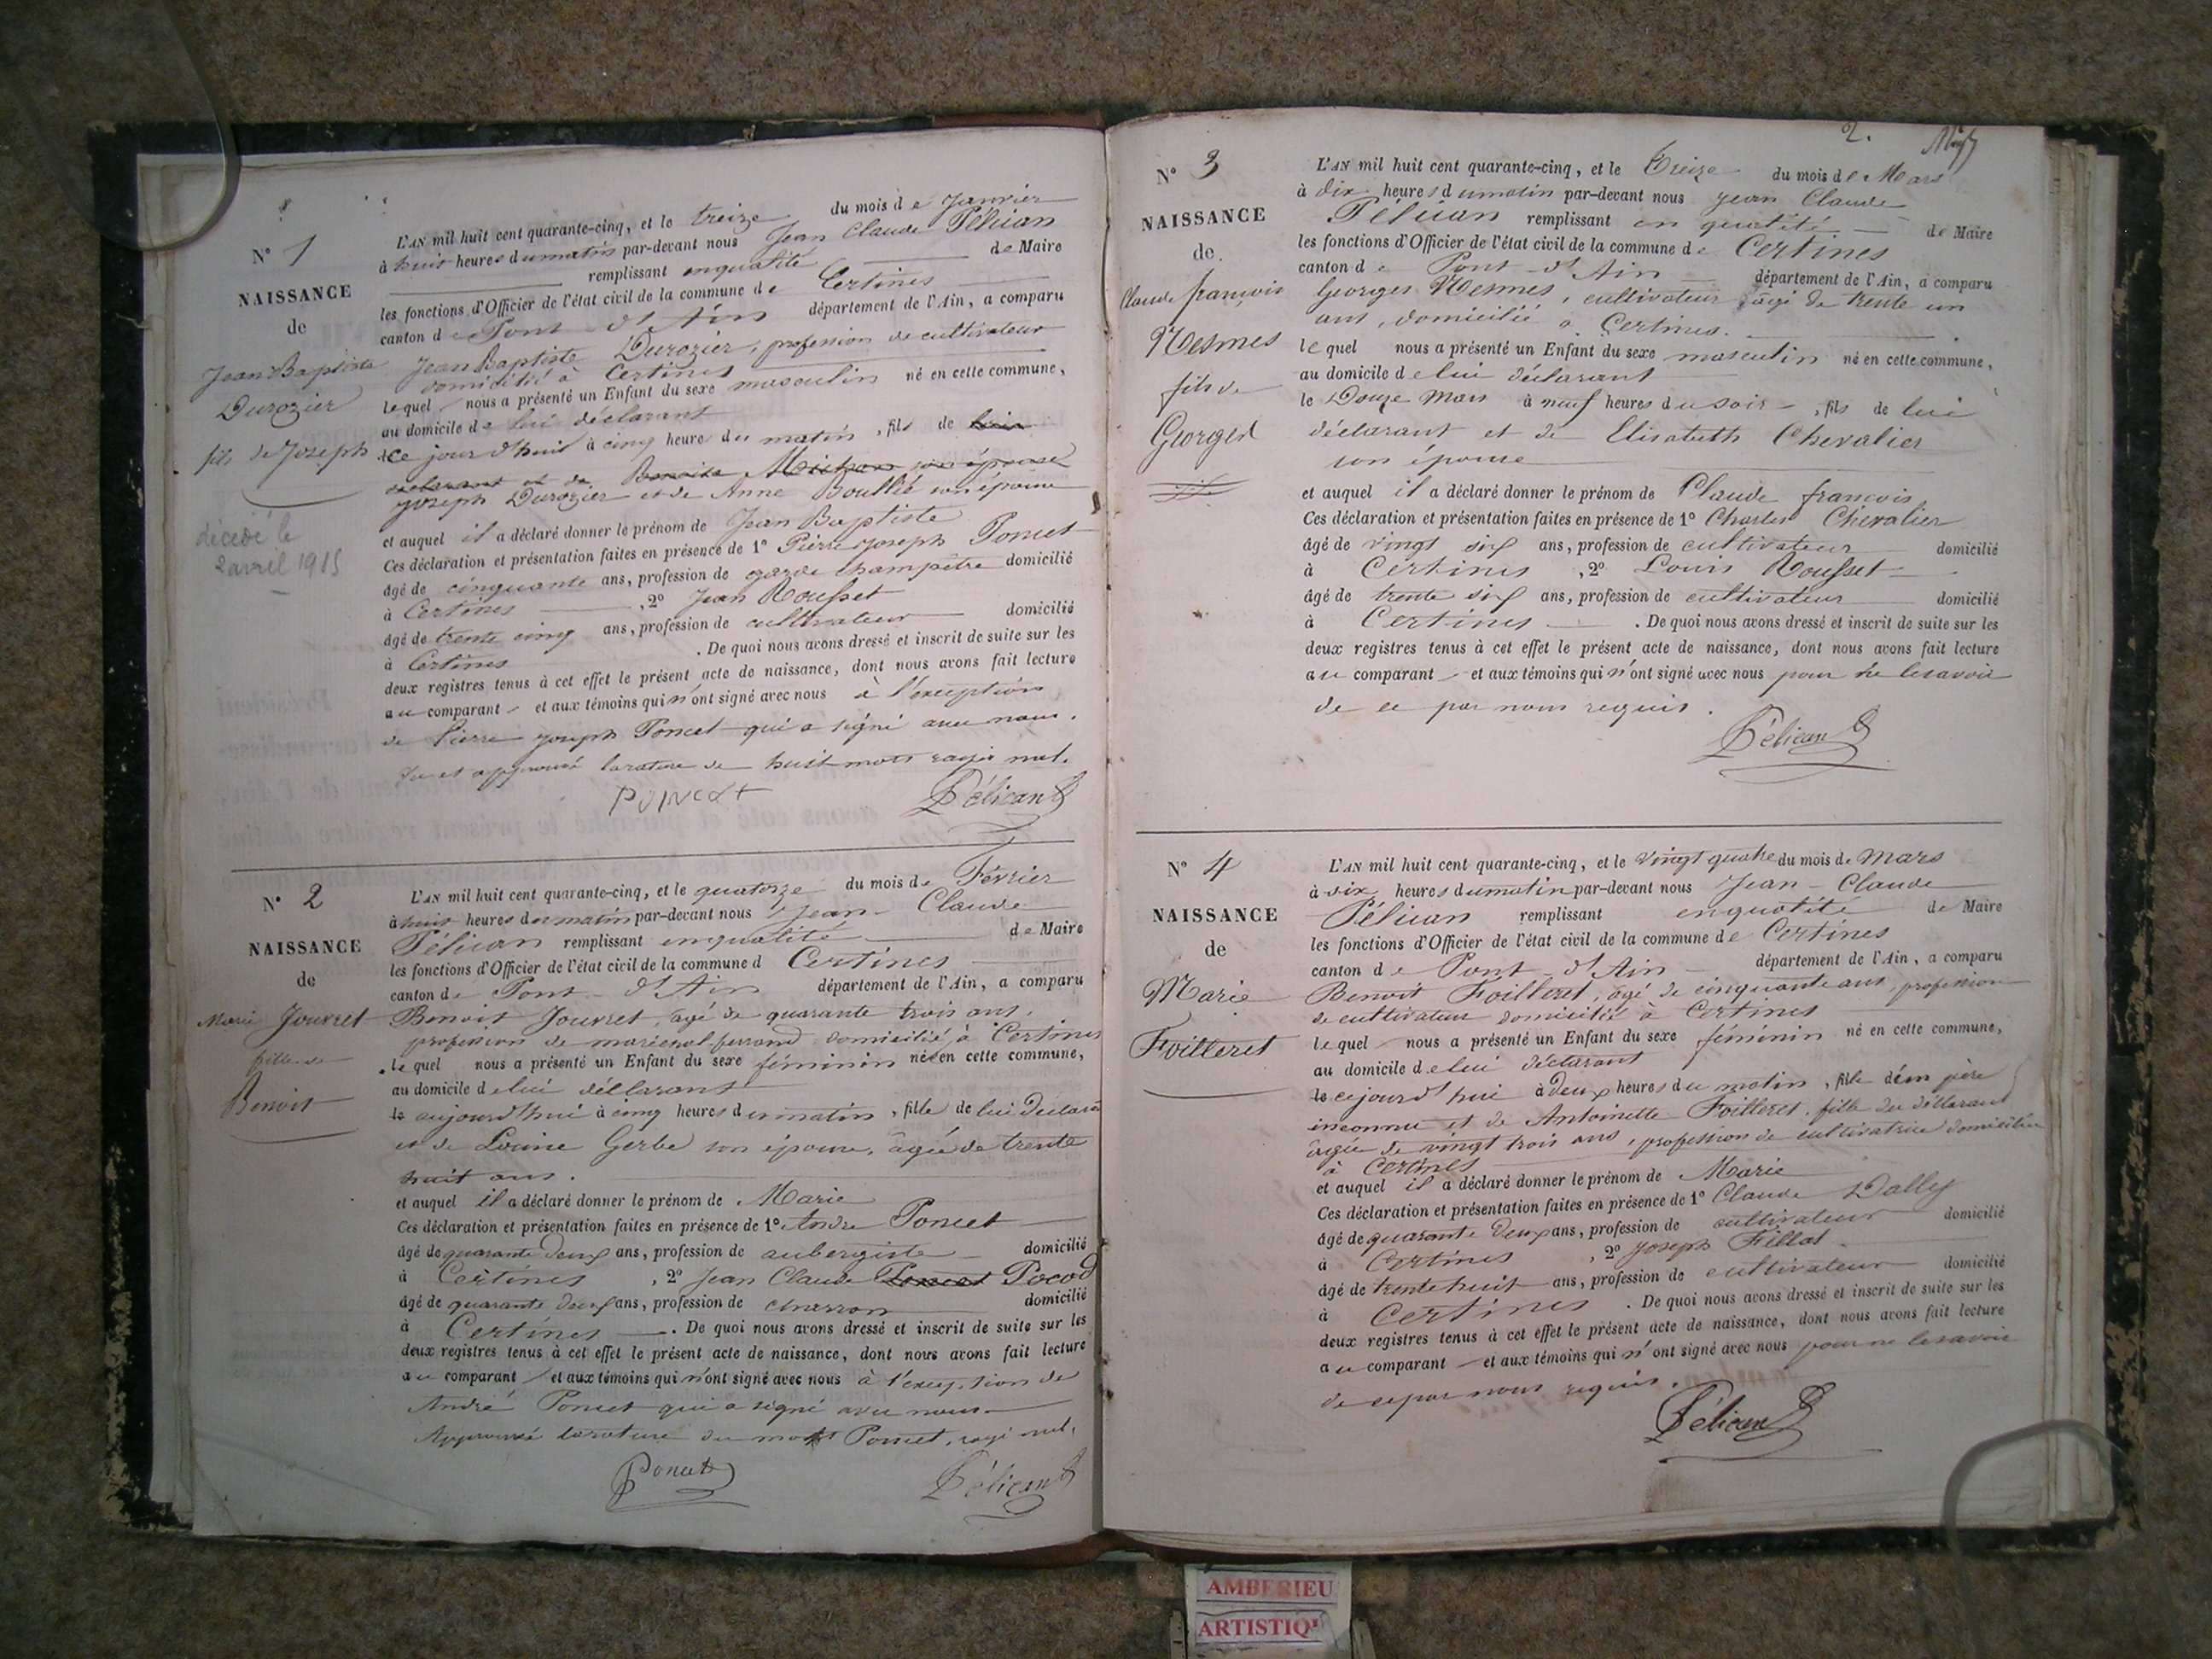 N° 1
NAISSANCE
de
Jean Baptiste
Durozier
fils de Joseph
décédé le
2 avril 1915
L'AN mil huit cent quarante-cinq, et le treize du mois de Janvier
à huit heures du matin par-devant nous Jean Claude Pélican
remplissant en qualité de Maire
les fonctions d'Officier de l'état civil de la commune de Certines
canton de Pont d'Ain département de l'Ain, a comparu
Jean Baptiste Durozier, profession de cultivateur
domicilié à Certines
lequel nous a présenté un Enfant du sexe masculin né en cette commune,
au domicile de lui déclarant
ce jour d'hui à cinq heure du matin, fils de lui
déclarant et de Benoite Michon son épouse
Joseph Durozier et de Anne Boullié son épouse
et auquel il a déclaré donner le prénom de Jean Baptiste
Ces déclaration et présentation faites en présence de 1° Pierre Joseph Poncet
âgé de cinquante ans, profession de garde champêtre domicilié
à Certines, 2° Jean Rousset
âgé de trente cinq ans, profession de cultivateur domicilié
à Certines. De quoi nous avons dressé et inscrit de suite sur les
deux registres tenus à cet effet le présent acte de naissance, dont nous avons fait lecture
au comparant et aux témoins qui n'ont signé avec nous à l'exception
de Pierre Joseph Poncet qui a signé avec nous.
Lu et approuvé la rature de huit mots rayés nul.
PONCET Pélican
N° 2
NAISSANCE
de
Marie Jouvret
fille de
Benoit
L'AN mil huit cent quarante-cinq, et le quatorze du mois de Février
à huit heures du matin par-devant nous Jean-Claude
Pélican remplissant en qualité de Maire
les fonctions d'Officier de l'état civil de la commune d Certines
canton de Pont-d'Ain département de l'Ain, a comparu
Benoit Jouvret, agé de quarante trois ans,
profession de maréchal ferrand domicilié à Certines
lequel nous a présenté un Enfant du sexe féminin née en cette commune,
au domicile de lui déclarant
le aujourd'hui à cinq heures du matin, fille de lui déclarant
et de Louise Gerbe son épouse, agée de trente
huit ans.
et auquel il a déclaré donner le prénom de Marie
Ces déclaration et présentation faites en présence de 1° André Poncet
âgé de quarante deux ans, profession de aubergiste domicilié
à Certines, 2° Jean Claude Poncet Pocod
âgé de quarante deux ans, profession de charron domicilié
à Certines. De quoi nous avons dressé et inscrit de suite sur les
deux registres tenus à cet effet le présent acte de naissance, dont nous avons fait lecture
au comparant et aux témoins qui n'ont signé avec nous à l'exception de
André Poncet qui a signé avec nous
Approuvé la rature du mot Poncet, rayé nul.
Poncet Pélican
2.
N° 3
NAISSANCE
de
Claude françois
Nesmes
fils de
Georges
L'AN mil huit cent quarante-cinq, et le treize du mois de Mars
à dix heures du matin par-devant nous Jean Claude
Pélican remplissant en qualité de Maire
les fonctions d'Officier de l'état civil de la commune de Certines
canton de Pont-d'Ain département de l'Ain, a comparu
Georges Nesmes, cultivateur agé de trente un
ans, domicilié à Certines.
lequel nous a présenté un Enfant du sexe masculin né en cette commune,
au domicile de lui déclarant
le Douze Mars à neuf heures du soir, fils de lui
déclarant et de Elisabeth Chevalier
son épouse
et auquel il a déclaré donner le prénom de Claude françois
Ces déclaration et présentation faites en présence de 1° Charles Chevalier
âgé de vingt six ans, profession de cultivateur domicilié
à Certines, 2° Louis Rousset
âgé de trente six ans, profession de cultivateur domicilié
à Certines. De quoi nous avons dressé et inscrit de suite sur les
deux registres tenus à cet effet le présent acte de naissance, dont nous avons fait lecture
au comparant et aux témoins qui n'ont signé avec nous pour ne le savoir
de ce par nous requis.
Pélican
N° 4
NAISSANCE
de
Marie
Foilleret
L'AN mil huit cent quarante-cinq, et le vingt quatre du mois de Mars
à six heures du matin par-devant nous Jean-Claude
Pélican remplissant en qualité de Maire
les fonctions d'Officier de l'état civil de la commune de Certines
canton de Pont-d'Ain département de l'Ain, a comparu
Benoit Foilleret, agé de cinquante ans, profession
de cultivateur domicilié à Certines
lequel nous a présenté un Enfant du sexe féminin né en cette commune,
au domicile de lui déclarant
le cejourd'hui à deux heures du matin, fille d'un père
inconnu et de Antoinette Foilleret, fille du déclarant
agée de vingt trois ans, profession de cultivatrice domiciliée
à Certines
et auquel il a déclaré donner le prénom de Marie
Ces déclaration et présentation faites en présence de 1° Claude Dally
âgé de quarante deux ans, profession de cultivateur domicilié
à Certines, 2° Joseph Fillot
âgé de trente huit ans, profession de cultivateur domicilié
à Certines. De quoi nous avons dressé et inscrit de suite sur les
deux registres tenus à cet effet le présent acte de naissance, dont nous avons fait lecture
au comparant et aux témoins qui n'ont signé avec nous pour ne le savoir
de ce par nous requis.
Pélican
AMBERIEU
ARTISTIQ